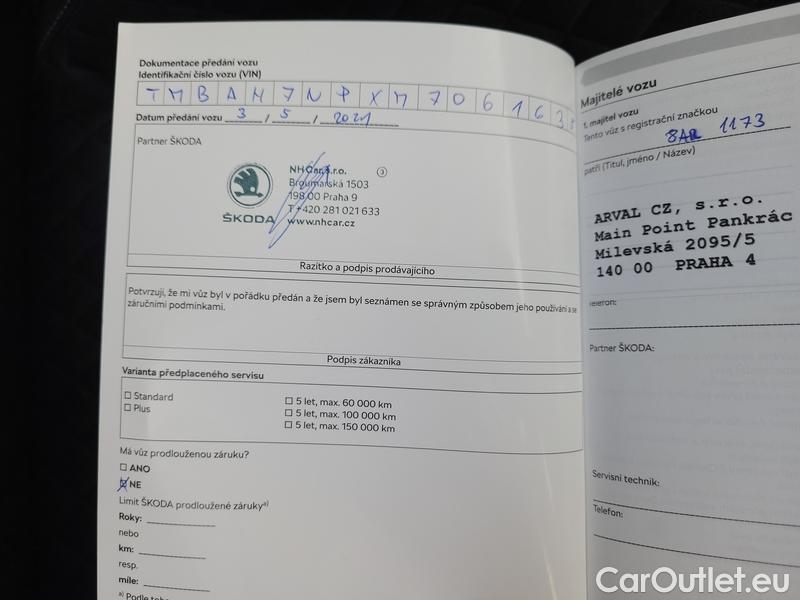 Dokumentace předání vozu
Identifikační číslo vozu (VIN)
TMBAM7NPXM706163
Datum předání vozu 3 / 5 / 2021
Partner ŠKODA
ŠKODA
NH Car, s.r.o.
Broumarská 1503
198 00 Praha 9
T +420 281 021 633
www.nhcar.cz
3
Razítko a podpis prodávajícího
Potvrzuji, že mi vůz byl v pořádku předán a že jsem byl seznámen se správným způsobem jeho používání a se
záručními podmínkami.
Podpis zákazníka
Varianta předplaceného servisu
Standard
Plus
5 let, max. 60 000 km
5 let, max. 100 000 km
5 let, max. 150 000 km
Má vůz prodlouženou záruku?
ANO
NE
Limit ŠKODA prodloužené záruky a)
Roky:
nebo
km:
resp.
míle:
a) Podle
Majitelé vozu
1. majitel vozu
Tento vůz s registrační značkou
8AR 1173
patří (Titul, jméno / Název)
ARVAL CZ, s.r.o.
Main Point Pankrác
Milevská 2095/5
140 00 PRAHA 4
Telefon:
Partner ŠKODA:
Servisní technik:
Telefon:
CarOutlet.eu